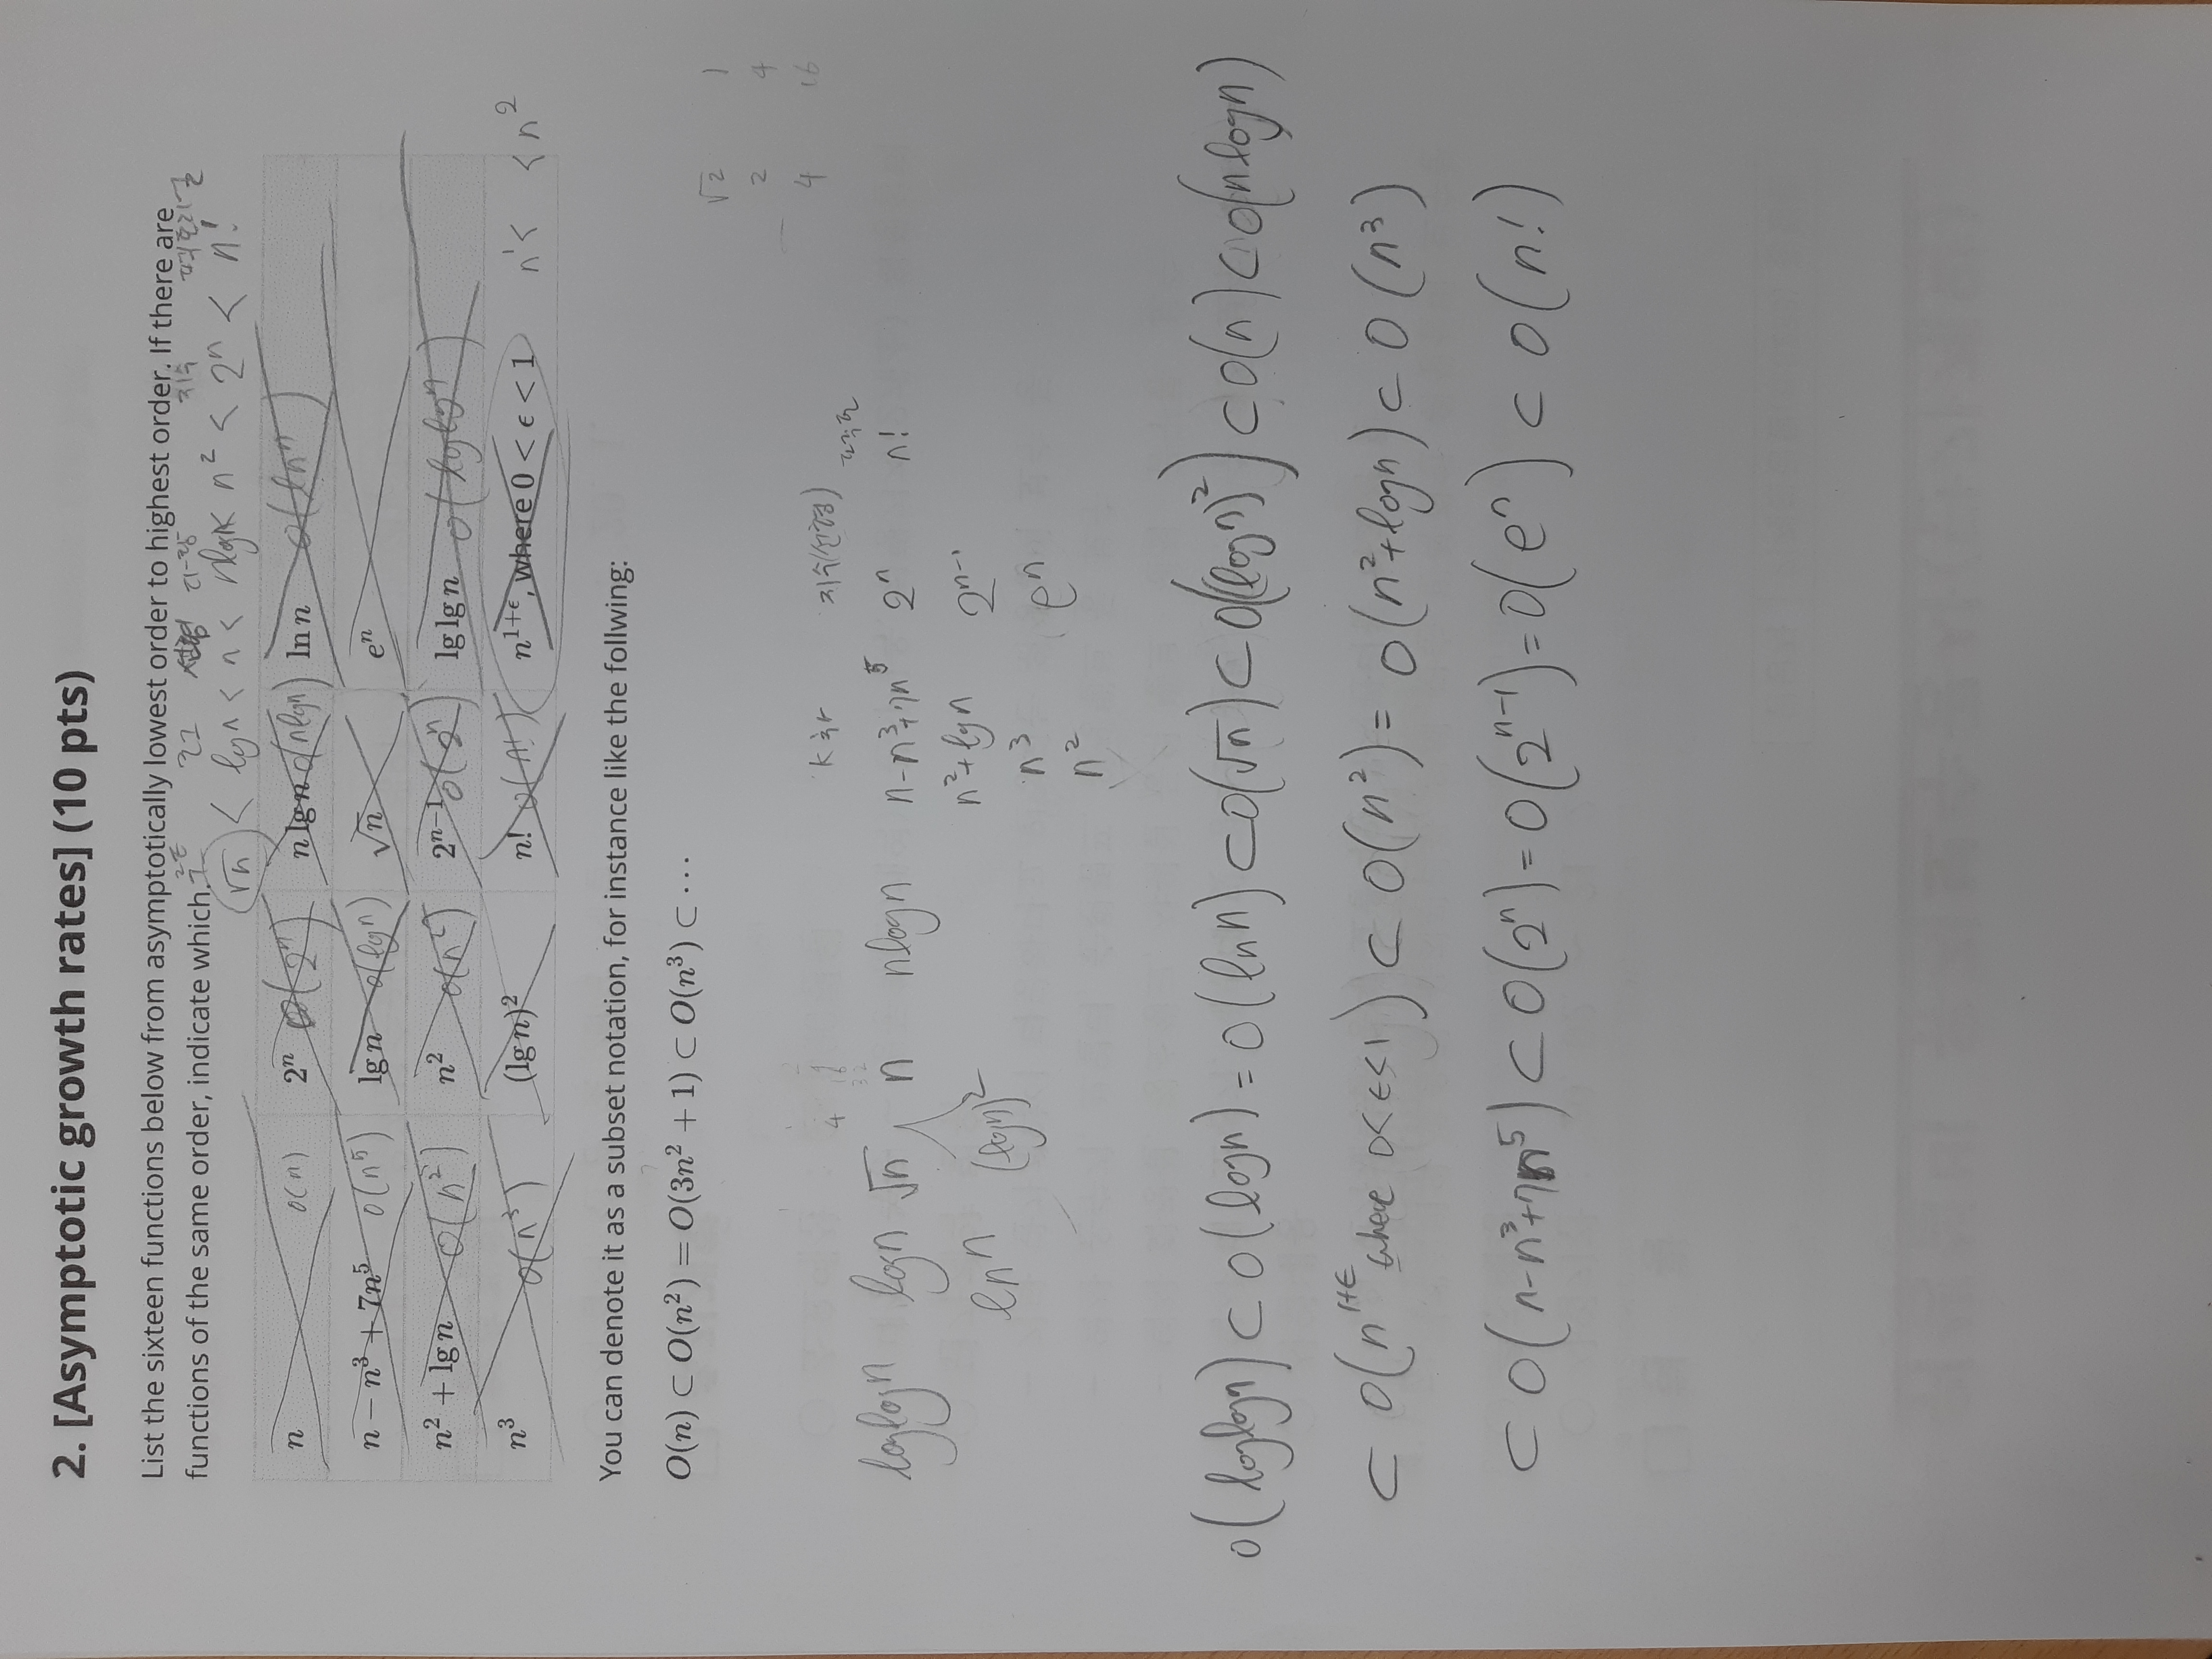 2. [Asymptotic growth rates] (10 pts)
List the sixteen functions below from asymptotically lowest order to highest order. If there are
functions of the same order, indicate which.
루트 로그 선형 다항 지수 팩토리얼
√n < lgn < n < nlgn < n² < 2ⁿ < n!
n O(n) 2ⁿ O(2ⁿ) n lg n O(nlgn) ln n O(lnⁿ)
n − n³ + 7n⁵ O(n⁵) lg n O(lgn) √n eⁿ
n² + lg n O(n²) n² O(n²) 2ⁿ⁻¹ O(2ⁿ) lg lg n O(lglgn)
n³ O(n³) (lg n)² n! O(n!) n¹⁺ᵋ, where 0 < ϵ < 1 n¹< <n²
You can denote it as a subset notation, for instance like the follwing:
O(n) ⊂ O(n²) = O(3n² + 1) ⊂ O(n³) ⊂ ⋯
√2 1
2 4
4 16
4 16
32
K차 지수(선형)
loglogn logn √n n nlogn n-n³+7n⁵ 2ⁿ n!
lnn (logn)² n²+lgn 2ⁿ⁻¹
n³ eⁿ
n²
O(loglogn) ⊂ O(logn) = O(lnn) ⊂ O(√n) ⊂ O((logn)²) ⊂ O(n) ⊂ O(nlogn)
⊂ O(n¹⁺ᵋ where 0<ϵ<1) ⊂ O(n²) = O(n²+logn) ⊂ O(n³)
⊂ O(n-n³+7n⁵) ⊂ O(2ⁿ) = O(2ⁿ⁻¹) = O(eⁿ) ⊂ O(n!)